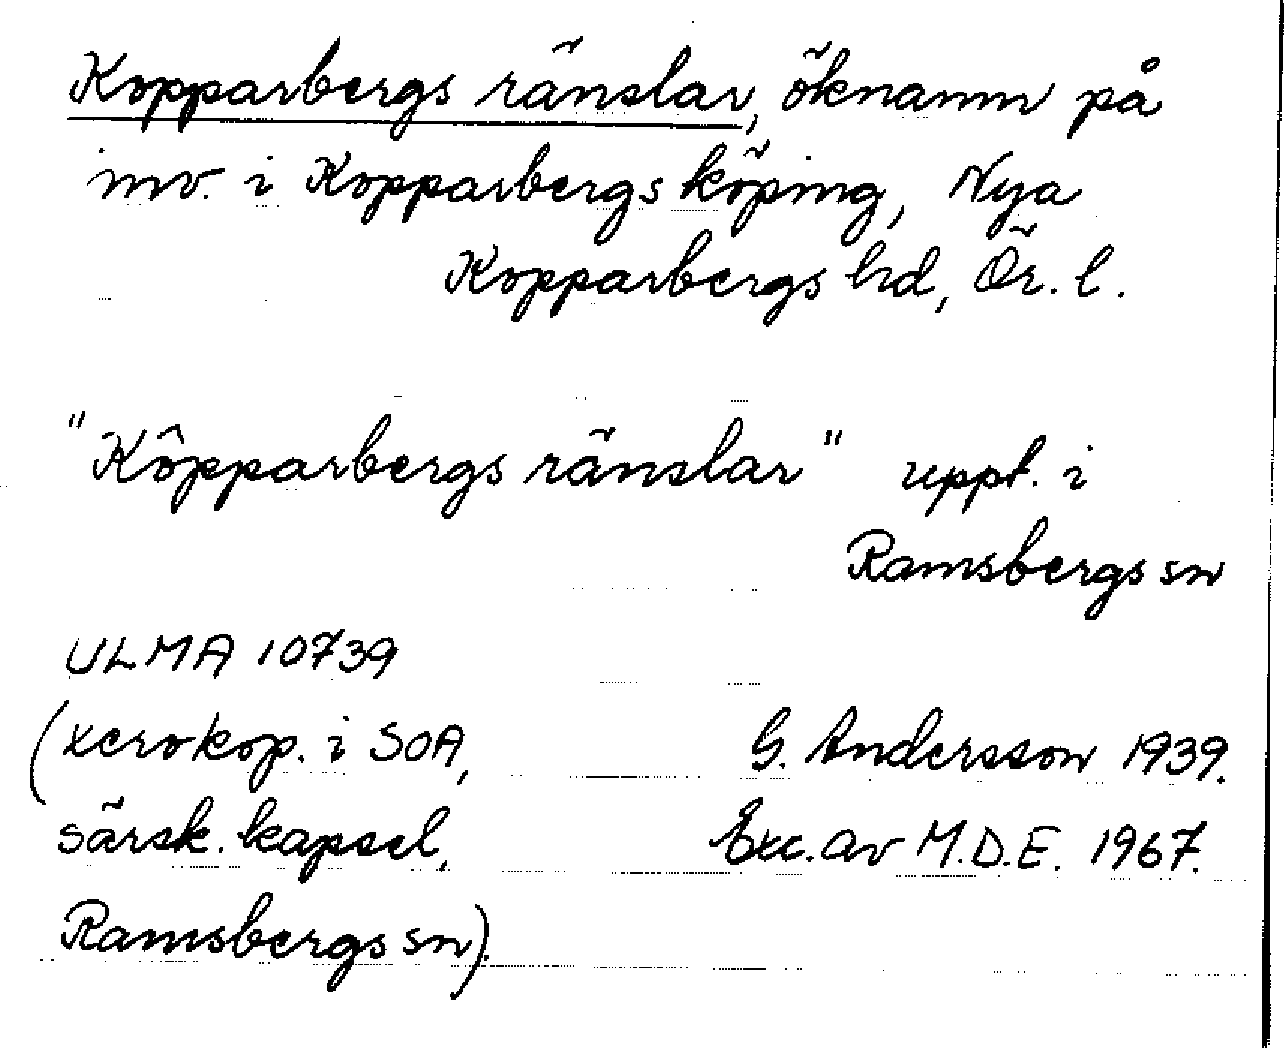 Kopparbergs ränslar, öknamn på
inv. i Kopparbergs köping, Nya
Kopparbergs hd, Ör. l.
"Kôpparbergs ränslar" uppt. i
Ramsbergs sn
ULMA 10739
(xerokop. i SOA, G. Andersson 1939.
särsk. kapsel, Exc. av M.D.E. 1967.
Ramsbergs sn).